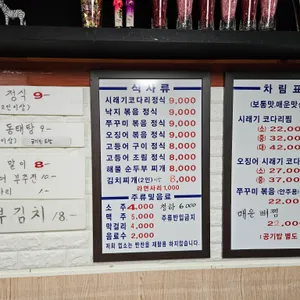 정식 9-
동태탕 9-
말이 8-
부추전 10-
김치 18-
식사류
시래기 코다리 정식 9,000
낙지 볶음 정식 9,000
쭈꾸미 볶음 정식 9,000
오징어 볶음 정식 9,000
고등어 구이 정식 8,000
고등어 조림 정식 8,000
해물 순두부 찌개 8,000
김치찌개(2인) 8,000
라면사리 1,000
주류및음료
소주 4,000 청하 6,000
맥주 5,000 주류반입금지
막걸리 4,000
음료수 2,000
저희 업소는 반찬을 재활용 하지않습니다.
차림표
(보통맛,매운맛
시래기 코다리찜
(소) 22,00
(중) 32,00
(대) 42,00
오징어 시래기 코다
(소) 27,00
(중) 37,00
쭈꾸미 볶음 (안주용)
22,00
매운
22,000
(공기밥 별도